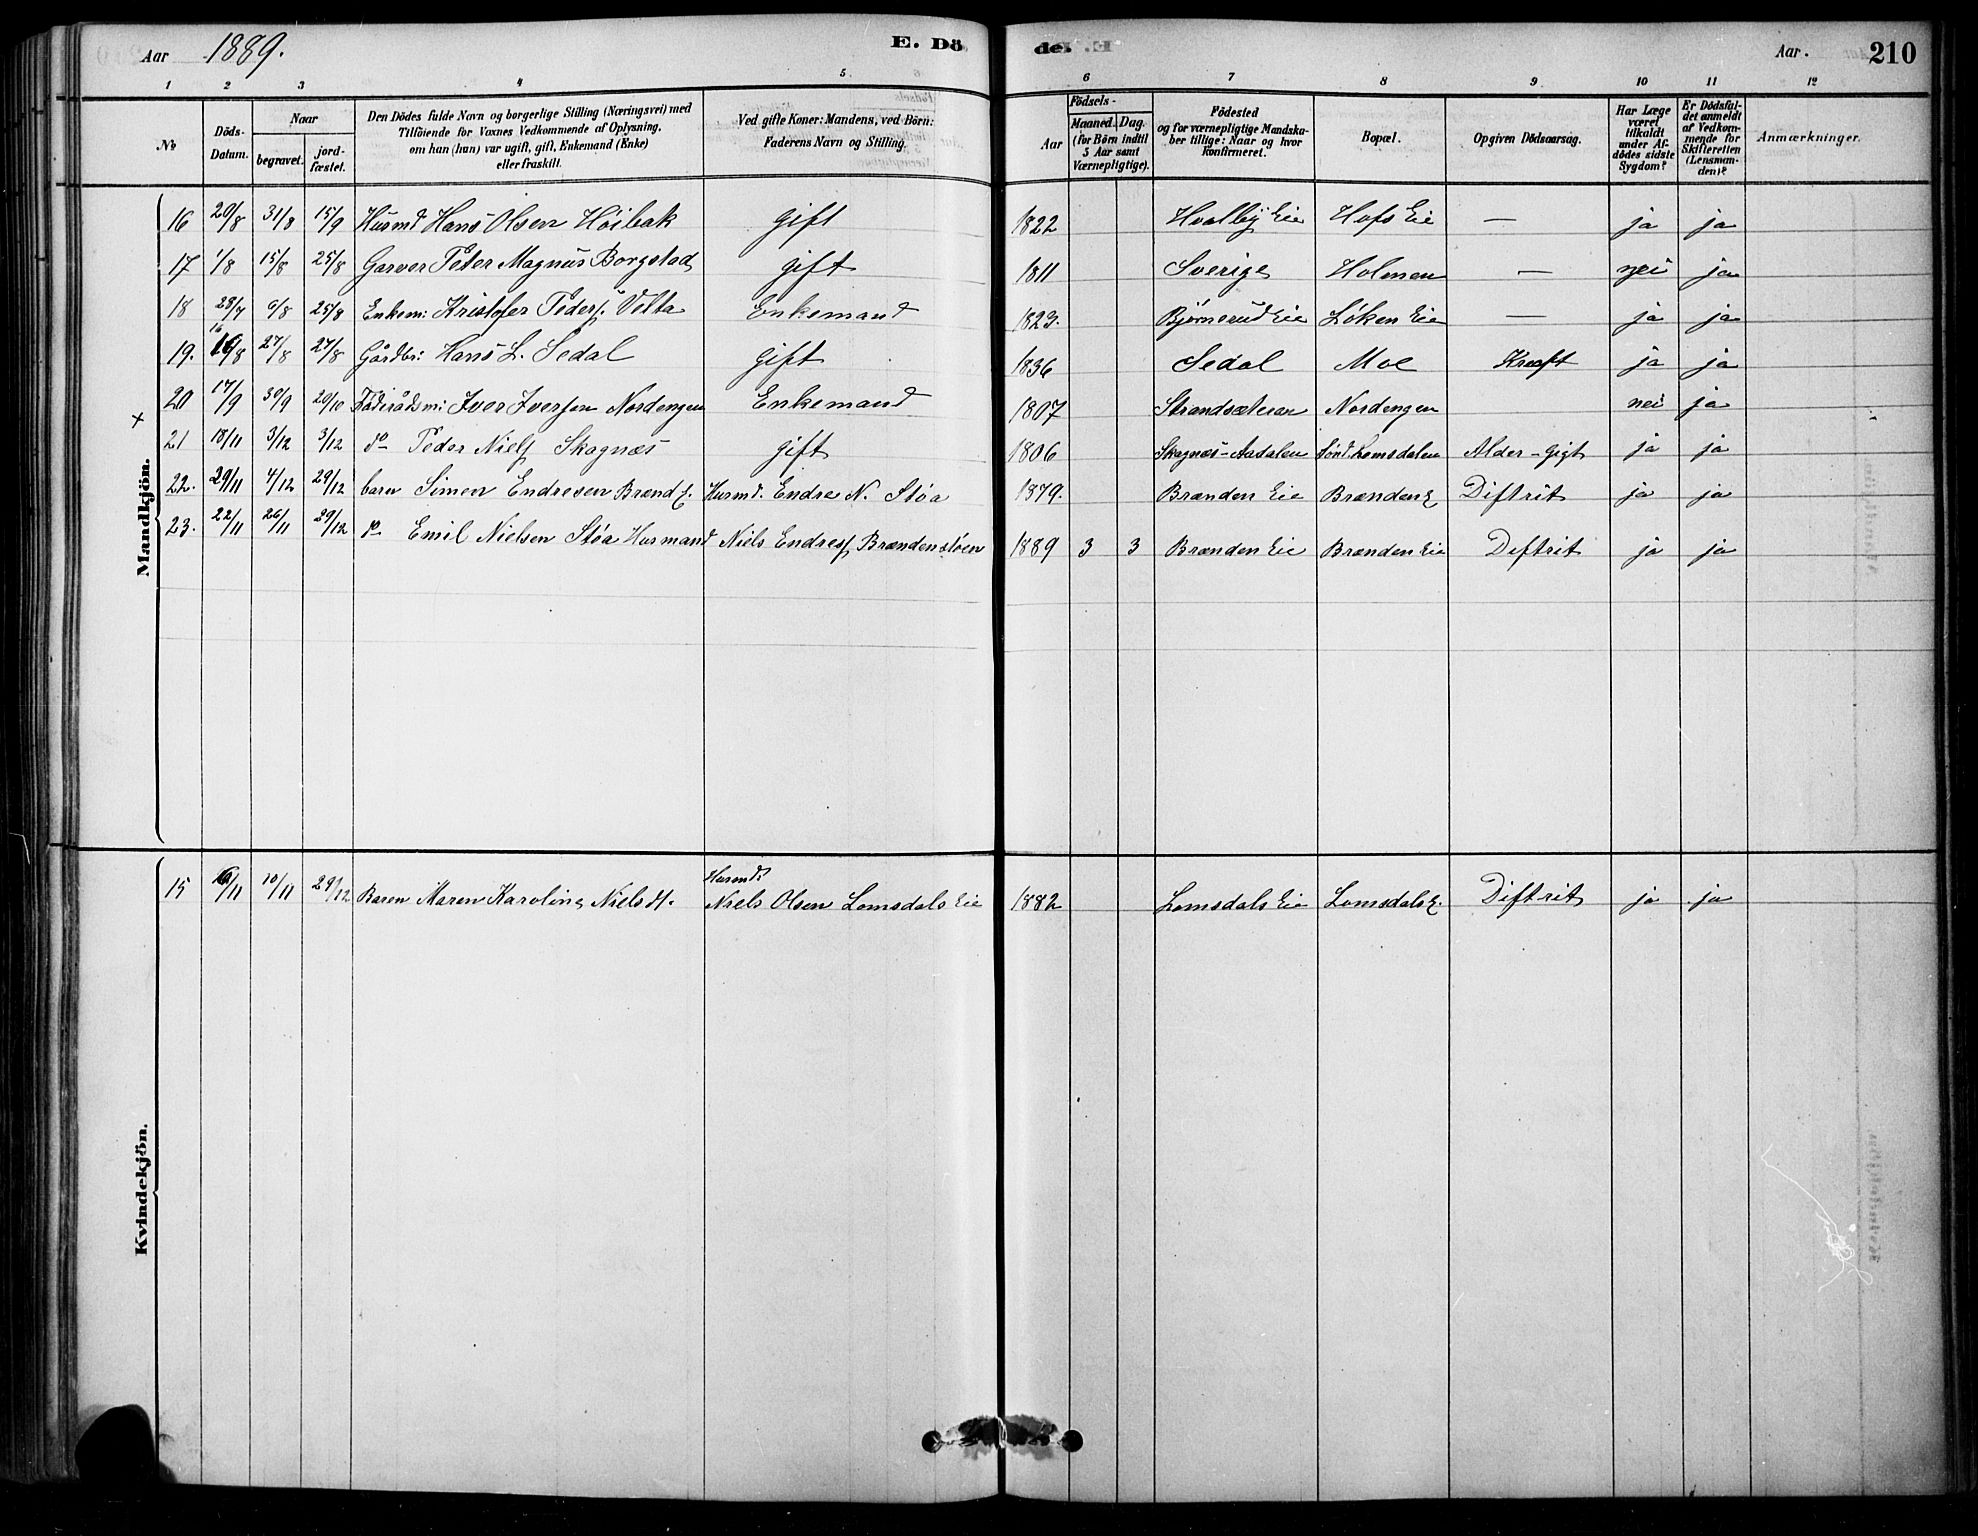 Aar 1889. E. Dö de. Aar. 210
1 2 3 4 5 6 7 8 9 10 11 12
No Döds-Datum. Naar begravet. jord-fæstet. Den Dödes fulde Navn og borgerlige Stilling (Næringsvei) med Tilföiende for Voxnes Vedkommende af Oplysning, om han (hun) var ugift, gift, Enkemand (Enke) eller fraskilt. Ved gifte Koner: Mandens, ved Börn: Faderens Navn og Stilling. Födsels- Aar Maaned. Dag. (for Börn indtil 5 Aar samt Værnepligtige). Födested og for værnepligtige Mandskaber tillige: Naar og hvor konfirmeret. Bopæl. Opgiven Dödsaarsag. Har Læge været tilkaldt under Afdödes sidste Sygdom? Er Dödsfaldet anmeldt af Vedkommende for Skifteretten (Lensmanden)? Anmærkninger.
Mandkjön.
16 20/8 31/8 15/9 Husmd Hans Olsen Høibak gift 1822 Hvalby Eie Hofs Eie — ja ja
17 1/8 15/8 25/8 Garver Peter Magnus Borgstad gift 1811 Sverige Holmen — nei ja
18 28/7 6/8 25/8 Enkem: Kristofer Peders. Velta Enkemand 1823. Bjørnerud Eie Løken Eie — ja ja
19. 16/8 27/8 27/8 Gårdbr: Hans L. Sedal gift 1836 Sedal Moe Kræft ja ja
× 20 17/9 30/9 20/10 Föderådsm: Iver Iversen Nordengen Enkemand 1807 Strandsæteren Nordengen nei ja
21 18/11 3/12 3/12 do Peder Niels. Skagnæs gift 1806 Skagnæs-Aadalen Sønd. Lomsdalen Alder-gigt ja ja
22. 29/11 4/12 29/12 barn Simen Endresen Brænd s. Husmd. Endre N. Støa 1879. Brænden Eie Brænden E Diftrit ja ja
23. 22/11 26/11 29/12 do Emil Nielsen Støa Husmand Niels Endres. Brændenstøen 1889 3 3 Brænden Eie Brænden Eie Diftrit ja ja
Kvindekjön.
Husmd.
15 6/11 10/11 29/12 Baren Maren Karoline Nielsdt. Niels Olsen Lomsdals Eie 1882 Lomsdals Eie Lomsdals E. Diftrit ja ja